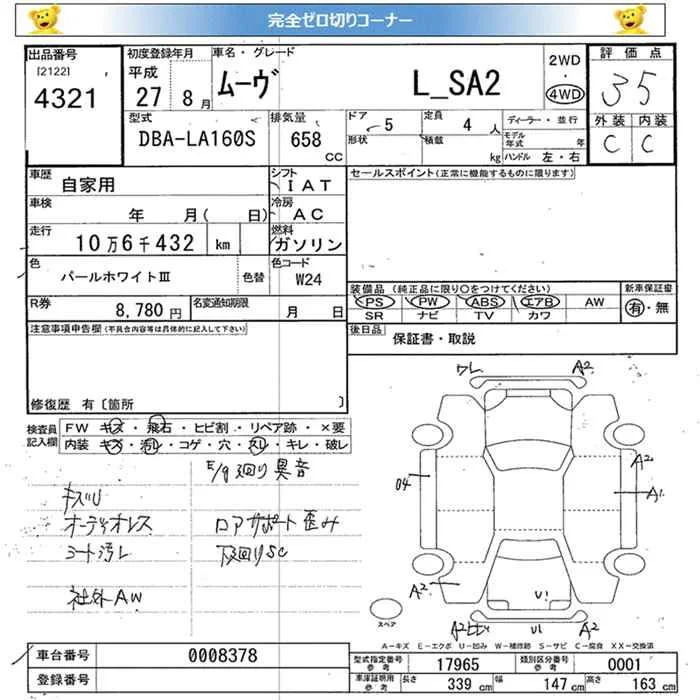 完全ゼロ切りコーナー
出品番号 初度登録年月 車名・グレード 評価点
[2122] 平成 ムーヴ L_SA2 2WD ・ 4WD 35
4321 27 8月
型式 排気量 ドア 5 定員 4人 ディーラー・並行 外装 内装
DBA-LA160S 658 cc 形状 積載 kg モデル年式 年 C C
ハンドル 左・右
車歴 自家用 シフト IAT セールスポイント(正常に機能するものに限ります)
車検 年 月( 日) 冷房 AC
走行 10万6千432 km 燃料 ガソリン
色 パールホワイトⅢ 色替 色コード W24
装備品 (純正品に限り○をつけてください) 新車保証書
R券 8,780円 名変通知期限 月 日 PS PW ABS エアB AW 有・無
SR ナビ TV カワ
注意事項申告欄(不具合内容等は具体的に記入して下さい) 後日品 保証書・取説
修復歴 有〔箇所 〕
検査員記入欄 FW キズ・飛石・ヒビ割・リペア跡・×要
内装 キズ・汚れ・コゲ・穴・スレ・キレ・破レ
E/g廻り異音
キズU
オーディオレス ロアサポート歪み
シート汚レ 下廻りSC
社外AW
ワレ A2
04 A2
A1
A2 U1
スペア A2 U1 A2
A-キズ E-エクボ U-凹み W-補修跡 S-サビ C-腐食 XX-交換済
車台番号 0008378 型式指定番号 参考 17965 類別区分番号 参考 0001
登録番号 車庫証明用 参考 長さ 339cm 幅 147cm 高さ 163cm